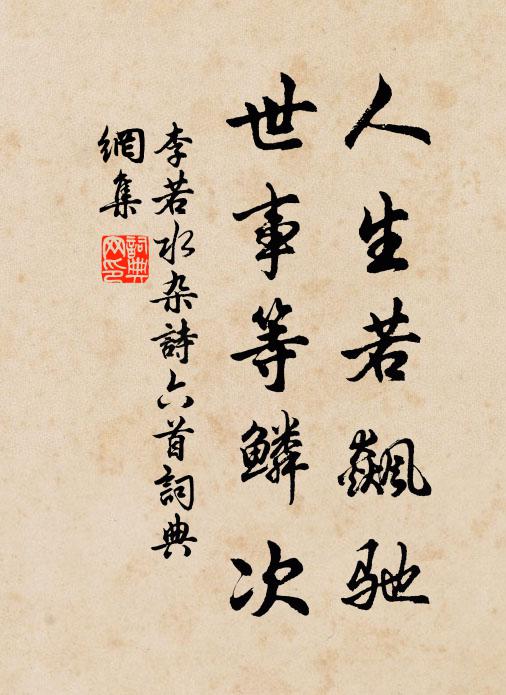 人生若飆馳
世事等鱗次
李若水杂詩六首詞典
網集
詞典
网印